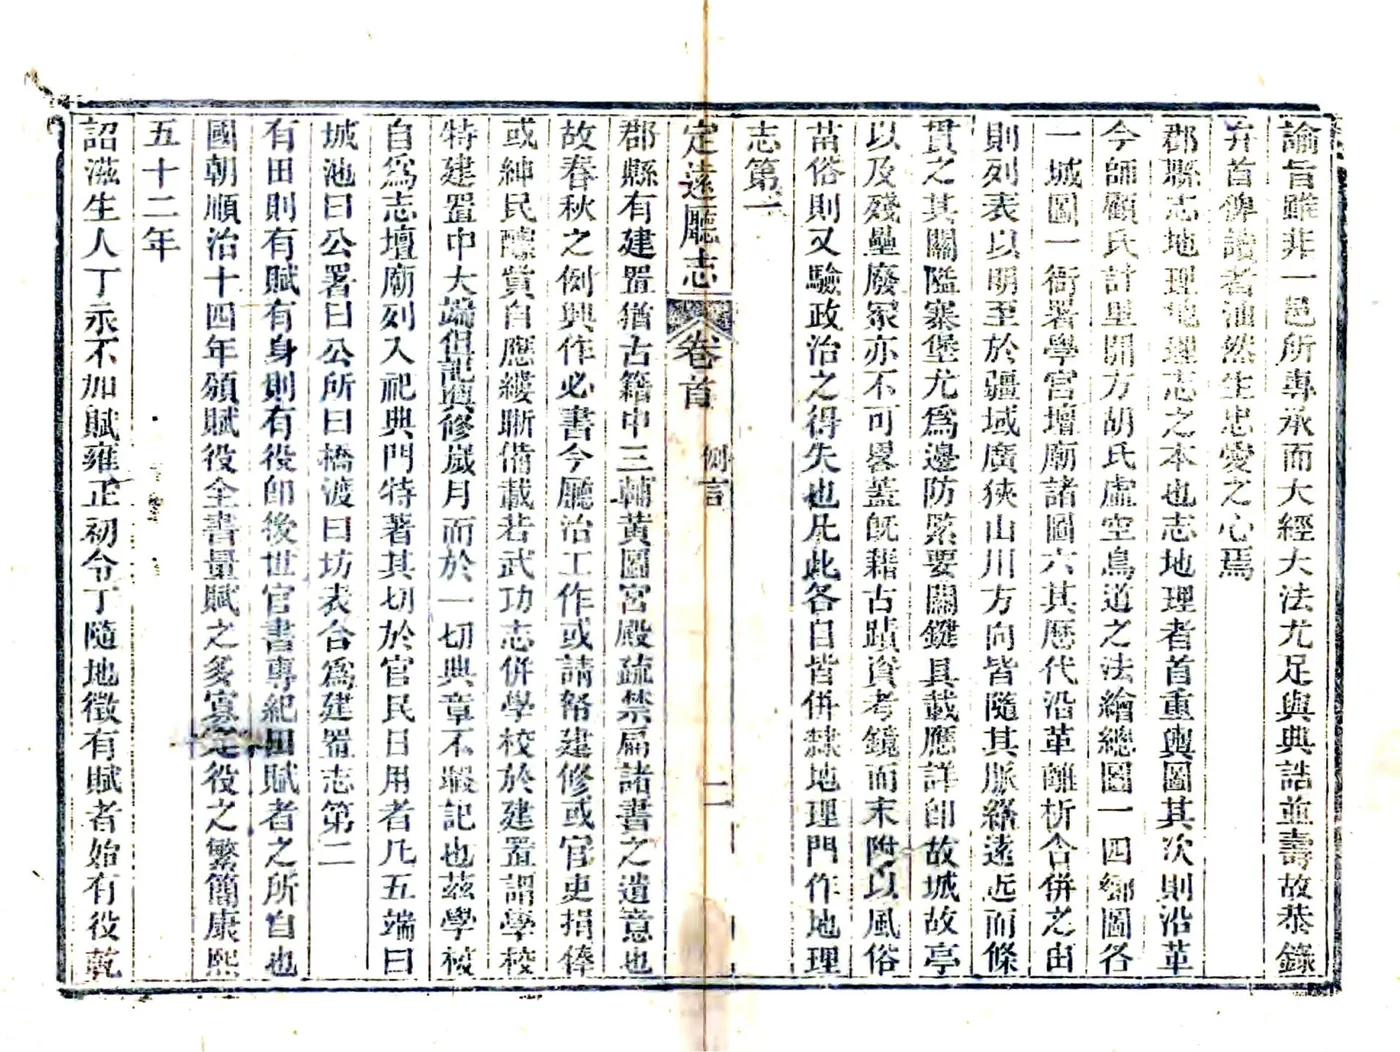 諭旨雖非一邑所專承而大經大法尤足與典誥並壽故恭錄
弁首俾讀者油然生忠愛之心焉
郡縣志地理地理志之本也志地理者首重輿圖其次則沿革
今師顧氏計里開方胡氏虛空鳥道之法繪總圖一四鄉圖各
一城圖一衙署學宮壇廟諸圖六其歷代沿革離析合併之由
則列表以明至於疆域廣狹山川方向皆隨其脈絡遠近而條
貫之其關隘寨堡尤爲邊防緊要關鍵具載應詳卽故城故亭
以及殘壘廢冢亦不可畧蓋旣藉古蹟資考鏡而末附以風俗
苗俗則又驗政治之得失也凡此各目皆併隸地理門作地理
志第一
定遠廳志 卷首 例言 二
郡縣有建置猶古籍中三輔黃圖宮殿疏禁扁諸書之遺意也
故春秋之例興作必書今廳治工作或請帑建修或官吏捐俸
或紳民醵貲自應縷晣備載若武功志併學校於建置謂學校
特建置中大端但記興修歲月而於一切典章不暇記也茲學校
自爲志壇廟列入祀典門特著其切於官民日用者凡五端曰
城池曰公署曰公所曰橋渡曰坊表合爲建置志第二
有田則有賦有身則有役卽後世官書專紀田賦者之所自也
國朝順治十四年頒賦役全書量賦之多寡定役之繁簡康熙
五十二年
詔滋生人丁永不加賦雍正初令丁隨地徵有賦者始有役乾